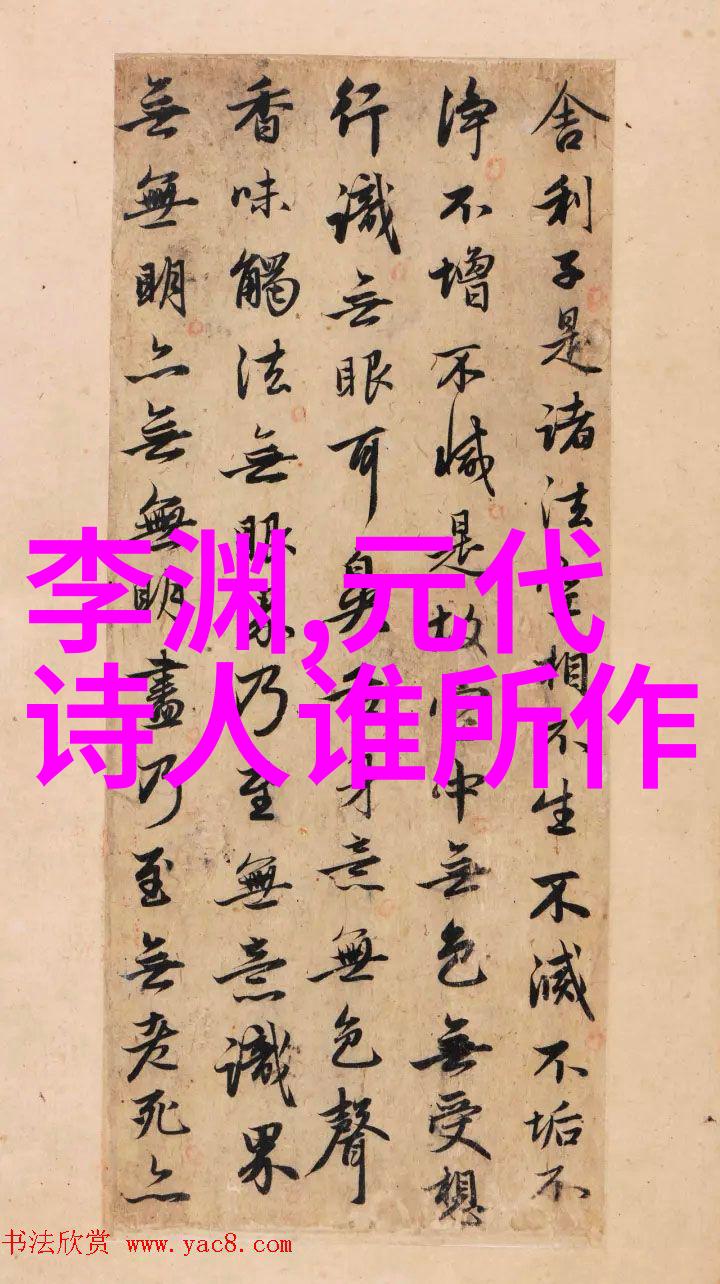 舍利子是諸法空相不生不滅不垢不
淨不增不減是故空中無色無受想
行識无眼耳鼻舌身意無色聲
香味觸法無眼界乃至無意識界
無無明亦無無明盡乃至無老死亦
李渊,元代
诗人谁所作
书法欣赏 www.yac8.com